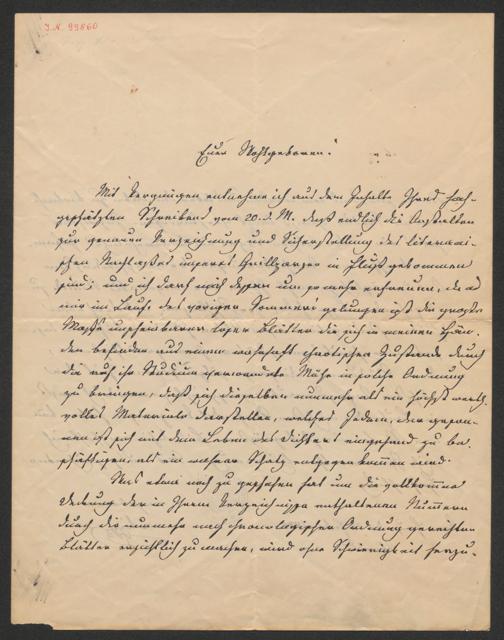 J.N. 99860
Euer Wohlgeboren!
Mit Vergnügen entnehme ich aus dem Inhalte Ihres hoch-
geschätzten Schreibens vom 20. d. M. daß endlich die Anstalten
zur genauen Verzeichnung und Sicherstellung des literari-
schen Nachlasses unseres Grillparzer in Fluß gekommen
sind; und ich darf mich dessen um so mehr erfreuen, da es
mir im Laufe des vorigen Sommers gelungen ist die große
Masse unscheinbarer loser Blätter die sich in meinen Hän-
den befinden aus einem wahrhaft chaotischen Zustande durch
die auf ihr Studium verwendete Mühe in solche Ordnung
zu bringen, daß sich dieselben nunmehr als ein höchst werth-
volles Materiale darstellen, welches Jedem, der geson-
nen ist sich mit dem Leben des Dichters eingehend zu be-
schäftigen, als ein wahrer Schatz entgegen kommen wird.
Was etwa noch zu geschehen hat um die vollkommene
Deckung der in Ihrem Verzeichnisse enthaltenen Nummern
durch die nunmehr nach chronologischer Ordnung gereihten
Blätter ersichtlich zu machen, wird ohne Schwierigkeit herzu-